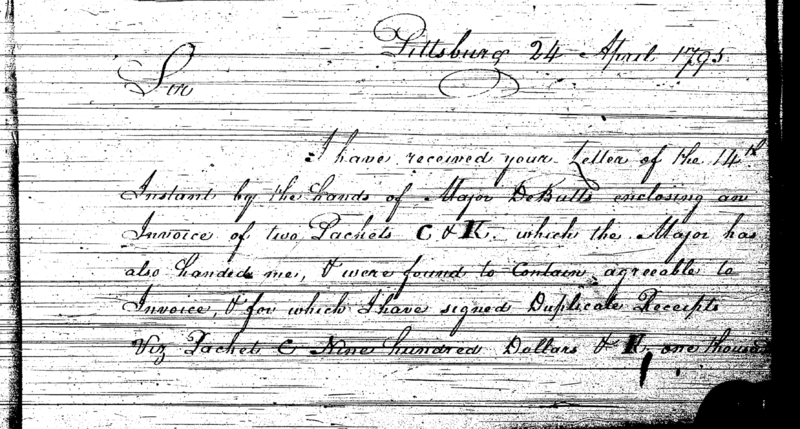 Pittsburg 24 April 1795
Sir
I have received your Letter of the 14th
Instant by the hands of Major DeButts enclosing an
Invoice of two Packets C & K which the Major has
also handed me, & were found to Contain agreeable to
Invoice, & for which I have signed Duplicate Receipts
Viz Packet C Nine hundred Dollars & K, one thousand